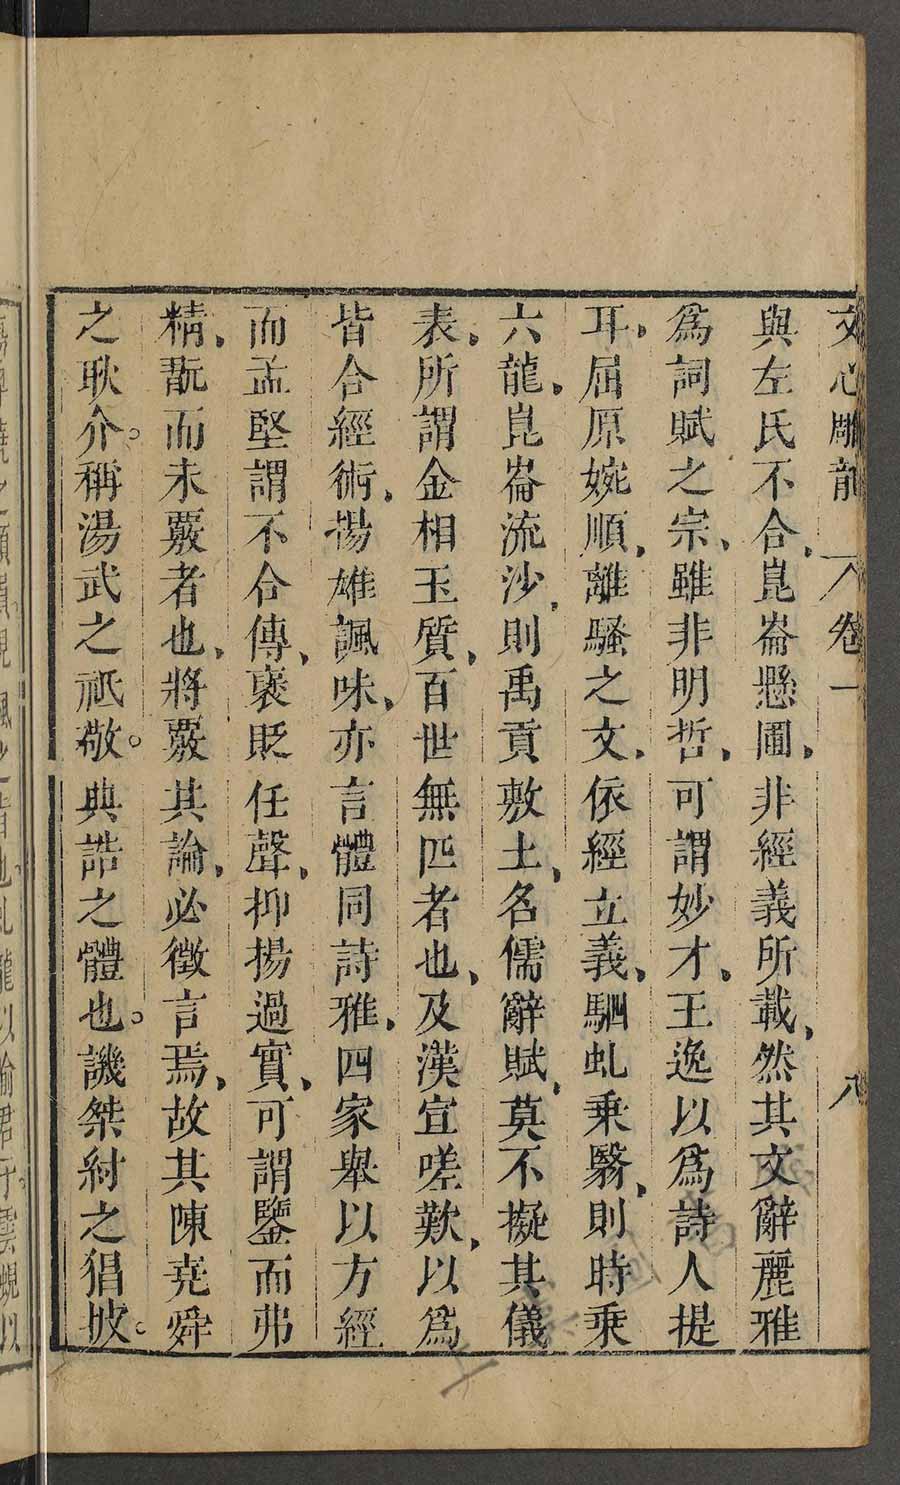 文心雕龍 卷一 八
與左氏不合、崑崙懸圃、非經義所載、然其文辭麗雅
爲詞賦之宗、雖非明哲、可謂妙才、王逸以爲詩人提
耳、屈原婉順、離騷之文、依經立義、駟虬乘鷖、則時乘
六龍、崑崙流沙、則禹貢敷土、名儒辭賦、莫不擬其儀
表、所謂金相玉質、百世無匹者也、及漢宣嗟歎、以爲
皆合經術、揚雄諷味、亦言體同詩雅、四家舉以方經
而孟堅謂不合傳、褒貶任聲、抑揚過實、可謂鑒而弗
精、翫而未覈者也、將覈其論、必徵言焉、故其陳堯舜
之耿介。稱湯武之祗敬。典誥之體也。譏桀紂之猖披。